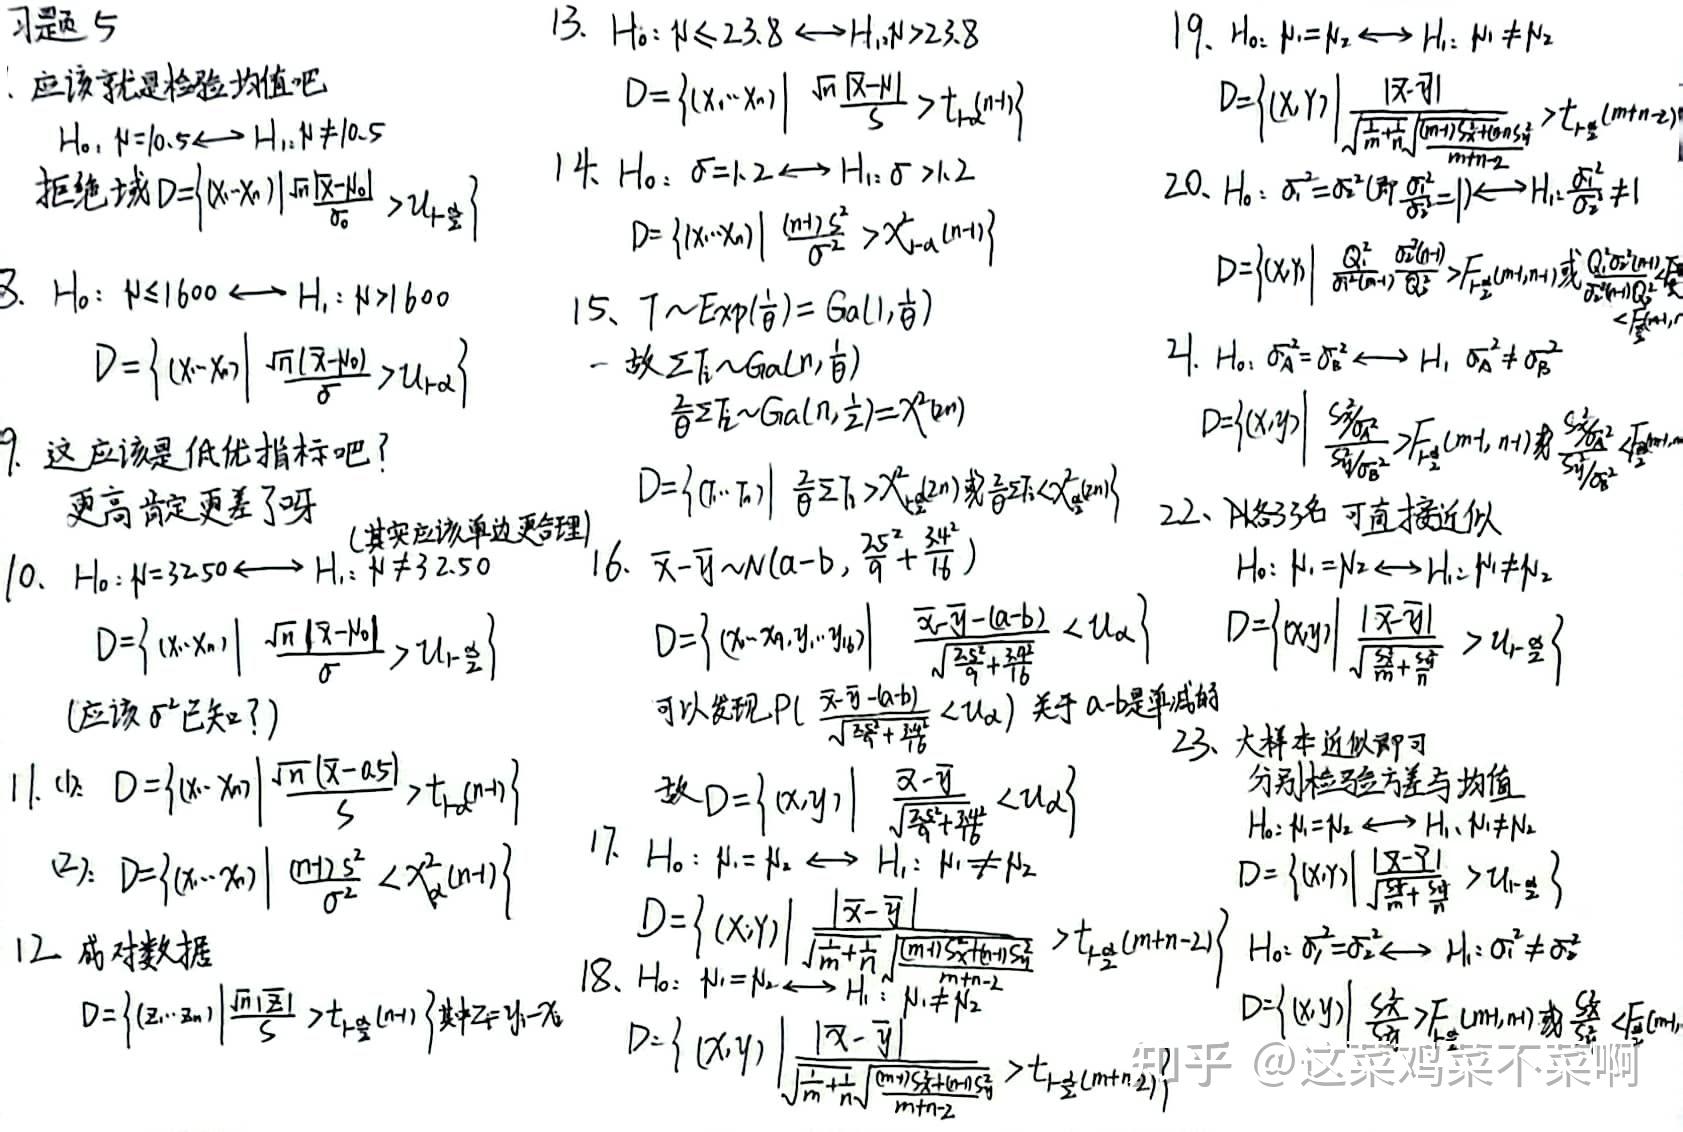 习题5
1. 应该就是检验均值吧
H₀: μ=10.5 ⟷ H₁: μ≠10.5
拒绝域 D={(x₁…xₙ) | √n|x̄-μ₀|/σ₀ > u_{1-α/2}}
8. H₀: μ≤1600 ⟷ H₁: μ>1600
D={(x₁…xₙ) | √n(x̄-μ₀)/σ > u_{1-α}}
9. 这应该是低优指标吧?
更高肯定更差了呀
(其实应该单边更合理)
10. H₀: μ=32.50 ⟷ H₁: μ≠32.50
D={(x₁…xₙ) | √n|x̄-μ₀|/σ > u_{1-α/2}}
(应该σ²已知?)
11. (1): D={(x₁…xₙ) | √n(x̄-0.5)/S > t_{1-α}(n-1)}
(2): D={(x₁…xₙ) | (n-1)S²/σ² < χ²_α(n-1)}
12 成对数据
D={(z₁…zₙ) | √n|z̄|/S > t_{1-α/2}(n-1)} 其中zᵢ=yᵢ-xᵢ
13. H₀: μ≤23.8 ⟷ H₁: μ>23.8
D={(x₁…xₙ) | √n|x̄-μ|/S > t_{1-α}(n-1)}
14. H₀: σ=1.2 ⟷ H₁: σ>1.2
D={(x₁…xₙ) | (n-1)S²/σ² > χ²_{1-α}(n-1)}
15、T~Exp(1/θ)=Ga(1,1/θ)
故 ΣTᵢ~Ga(n,1/θ)
2/θ ΣTᵢ~Ga(n,1/2)=χ²(2n)
D={(T₁…Tₙ) | 2/θ ΣTᵢ > χ²_{1-α/2}(2n) 或 2/θ ΣTᵢ < χ²_{α/2}(2n)}
16. x̄-ȳ~N(a-b, 25²/9+34²/16)
D={(x₁…x₉,y₁…y₁₆) | (x̄-ȳ-(a-b))/√(25²/9+34²/16) < u_α}
可以发现P((x̄-ȳ-(a-b))/√(25²/9+34²/16) < u_α) 关于a-b是单减的
故 D={(x,y) | (x̄-ȳ)/√(25²/9+34²/16) < u_α}
17. H₀: μ₁=μ₂ ⟷ H₁: μ₁≠μ₂
D={(X,Y) | |x̄-ȳ|/(√(1/m+1/n)√(((m-1)Sx²+(n-1)Sy²)/(m+n-2))) > t_{1-α/2}(m+n-2)}
18、H₀: μ₁=μ₂ ⟷ H₁: μ₁≠μ₂
D={(x,y) | |x̄-ȳ|/(√(1/m+1/n)√(((m-1)Sx²+(n-1)Sy²)/(m+n-2))) > t_{1-α/2}(m+n-2)}
19、H₀: μ₁=μ₂ ⟷ H₁: μ₁≠μ₂
D={(X,Y) | |x̄-ȳ|/(√(1/m+1/n)√(((m-1)Sx²+(n-1)Sy²)/(m+n-2))) > t_{1-α/2}(m+n-2)
20、H₀: σ₁²=σ₂²(即σ₁²/σ₂²=1) ⟷ H₁: σ₁²/σ₂²≠1
D={(X,Y) | Q₁²/(σ₁²(m-1)) σ₂²(n-1)/Q₂² > F_{1-α/2}(m-1,n-1) 或 Q₁²σ₂²(n-1)/(σ₁²(m-1)Q₂²)
< F_{α/2}(m-1,n
21. H₀: σ_A²=σ_B² ⟷ H₁ σ_A²≠σ_B²
D={(x,y) | (Sx²/σ_A²)/(Sy²/σ_B²) > F_{1-α/2}(m-1,n-1) 或 (Sx²/σ_A²)/(Sy²/σ_B²) < F_{α/2}(m-1,n
22、各33名 可直接近似
H₀: μ₁=μ₂ ⟷ H₁: μ₁≠μ₂
D={(x,y) | |x̄-ȳ|/√(Sx²/m+Sy²/n) > u_{1-α/2}}
23、大样本近似即可
分别检验方差与均值
H₀: μ₁=μ₂ ⟷ H₁: μ₁≠μ₂
D={(X,Y) | |x̄-ȳ|/√(Sx²/m+Sy²/n) > u_{1-α/2}}
H₀: σ₁²=σ₂² ⟷ H₁: σ₁²≠σ₂²
D={(X,y) | Sx²/Sy² > F_{1-α/2}(m-1,n-1) 或 Sx²/Sy² < F_{α/2}(m-1,
知乎 @这菜鸡菜不菜啊